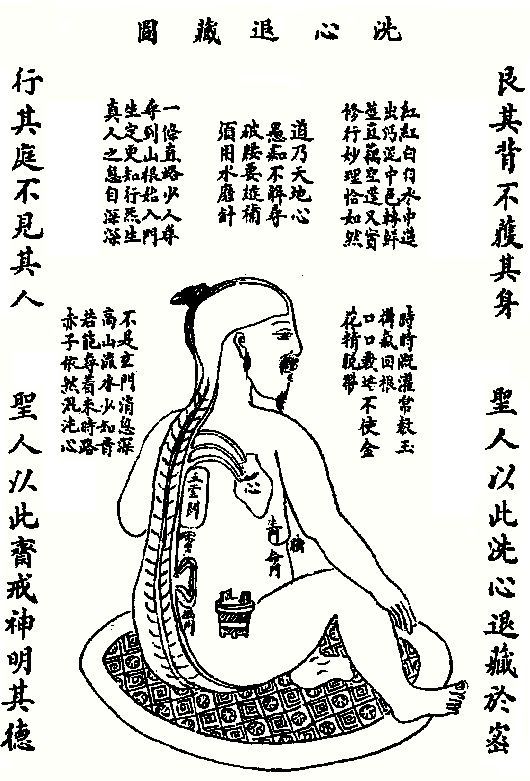 洗心退藏圖
艮其背不獲其身
聖人以此洗心退藏於密
紅紅白白水中蓮
出污泥中色轉鮮
莖直藕空蓬又實
修行妙理恰如然
道乃天地心
愚痴不解尋
破腰要裩補
須用水磨針
一條直路少人尋
尋到山根始入門
坐定更知行炁主
真人之息自深深
行其庭不見其人
聖人以此齋戒神明其德
時時漑灌常教玉
樹氣回根
日日栽培不使金
花精脫蒂
不是玄門消息深
高山流水少知音
若能尋着來時路
赤子依然混沌心
心